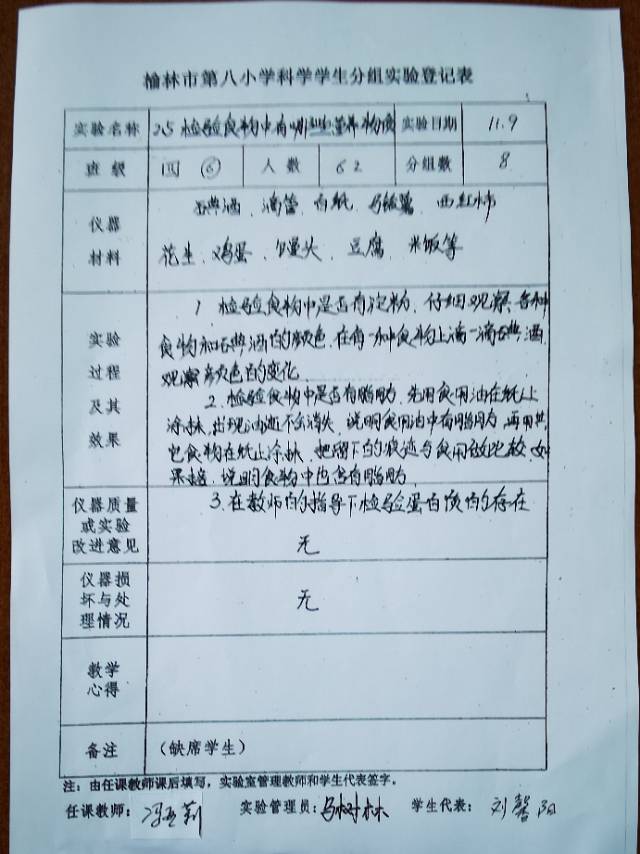 榆林市第八小学科学学生分组实验登记表
实验名称 25 检验食物中有哪些营养物质 实验日期 11.9
班级 四 ⑥ 人数 62 分组数 8
仪器 碘酒、滴管、白纸、马铃薯、西红柿
材料 花生、鸡蛋、馒头、豆腐、米饭等
1. 检验食物中是否有淀粉，仔细观察各种
实验 食物和碘酒的颜色，在每一种食物上滴一滴碘酒，
过程 观察颜色的变化
及其 2. 检验食物中是否有脂肪，先用食用油在纸上
涂抹，出现油迹不会消失，说明食用油中有脂肪，再用其
效果 它食物在纸上涂抹，把留下的痕迹与食用做比较，如
果接，说明食物中也含有脂肪
仪器质量 3. 在教师的指导下检验蛋白质的存在
或实验
改进意见 无
仪器损
坏与处 无
理情况
教学
心得
备注 （缺席学生）
注：由任课教师课后填写，实验室管理教师和学生代表签字。
任课教师：冯亚莉 实验管理员：马树林 学生代表：刘馨阳